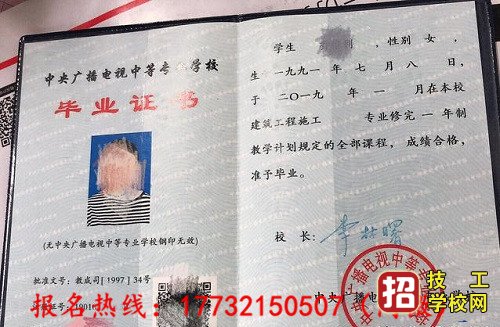 中央广播电视中等专业学校
毕业证书
(无中央广播电视中等专业学校钢印无效)
批准文号：教成司[1997]34号
学生 ，性别 女，
生 一九九一 年 七 月 八 日，
于 二〇一九 年 一 月在本校
建筑工程施工 专业修完 一 年制
教学计划规定的全部课程，成绩合格，
准予毕业。
校 长：李林曙
中央广播电
报名热线：17732150507
招
技工
学校网